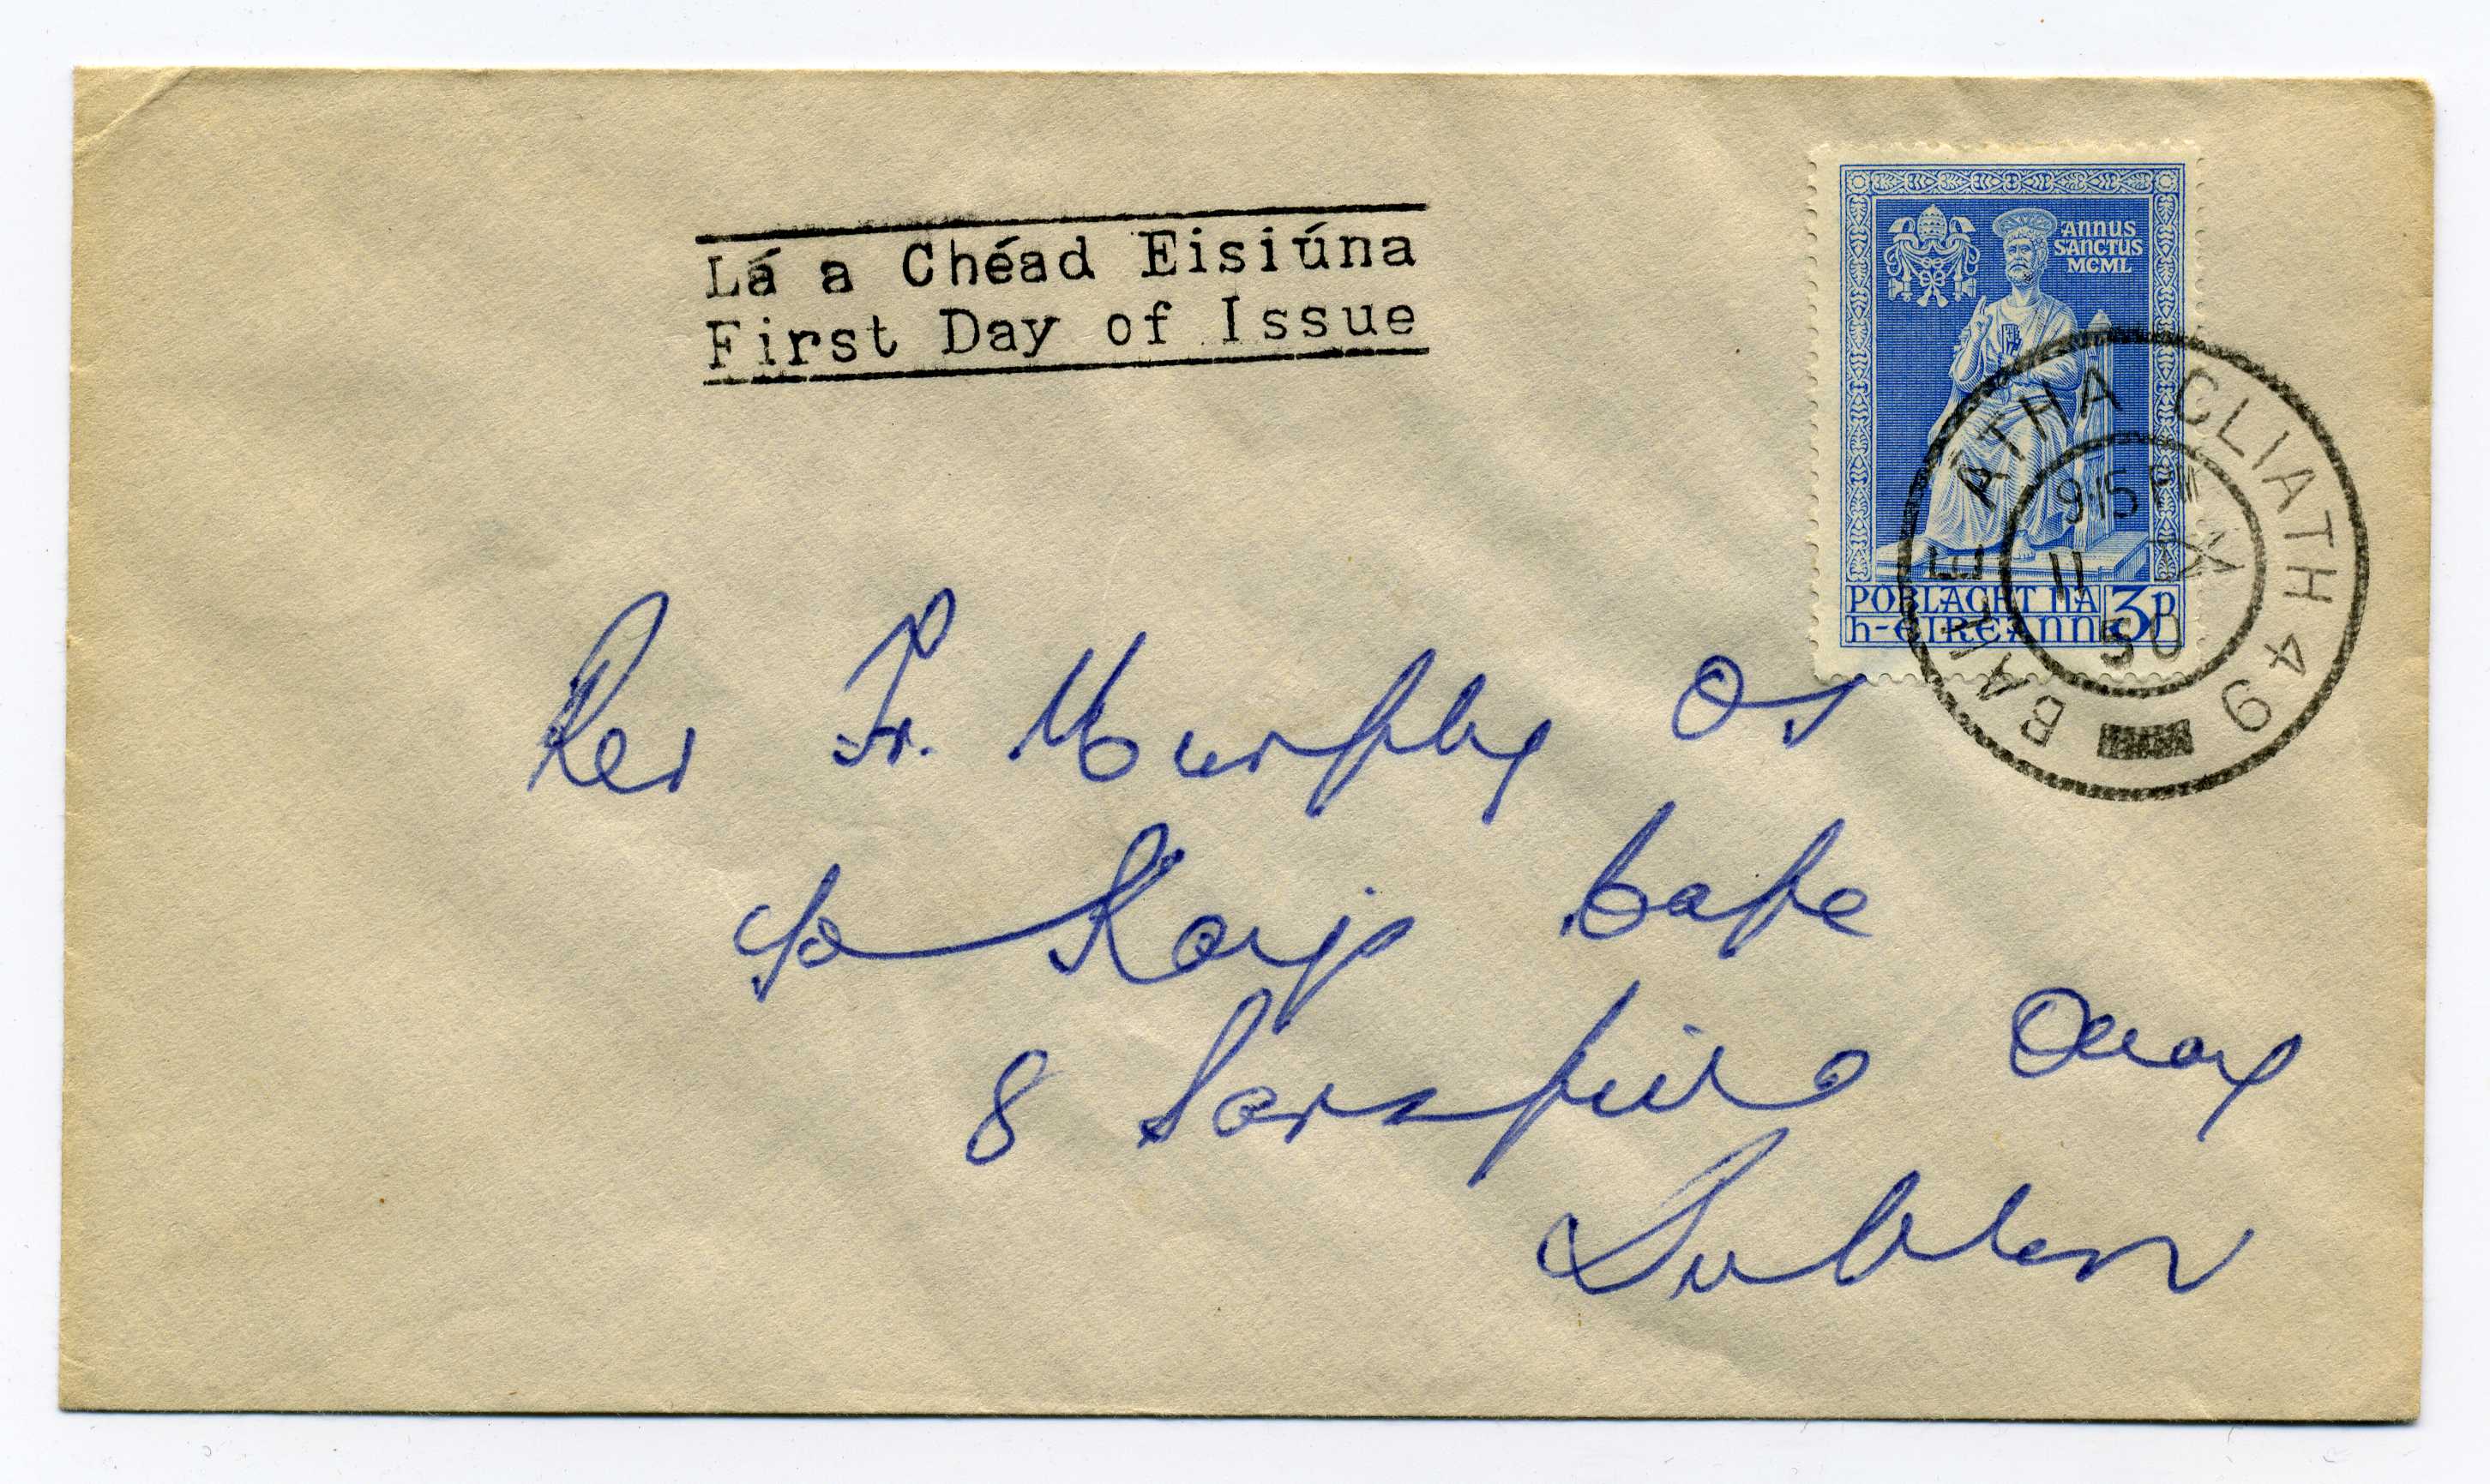 Lá a Chéad Eisiúna
First Day of Issue
ANNUS
SANCTUS
MCML
POBLACHT NA
h-EIREANN 3p
BAILE ÁTHA CLIATH 49
9.15 PM
11 IX
50
Rev Fr. Murphy
c/o Cafe
8 Quay
Dublin